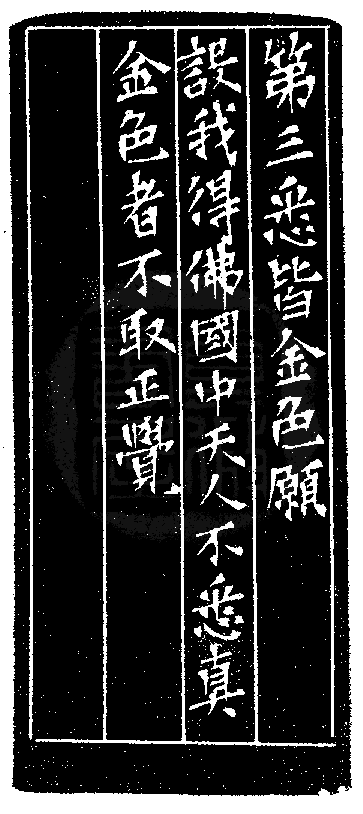 第三悉皆金色願
設我得佛國中天人不悉真
金色者不取正覺